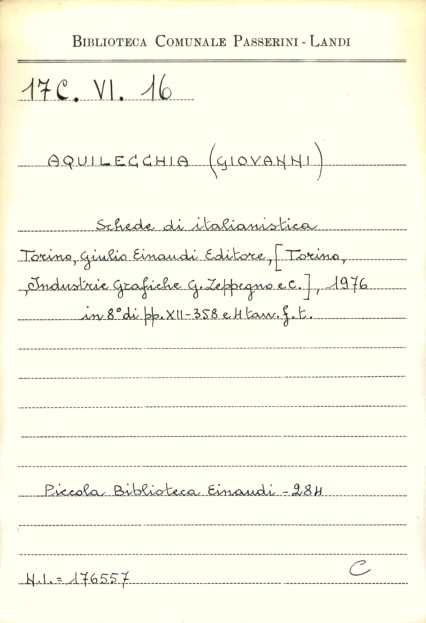 BIBLIOTECA COMUNALE PASSERINI - LANDI
17C. VI. 16
AQUILECCHIA (GIOVANNI)
Schede di italianistica
Torino, Giulio Einaudi Editore, [Torino,
, Industrie Grafiche G. Zeppegno e C.], 1976
in 8° di pp. XII-358 e 4 tav. f. t.
Piccola Biblioteca Einaudi - 284
N.I. = 176557
C